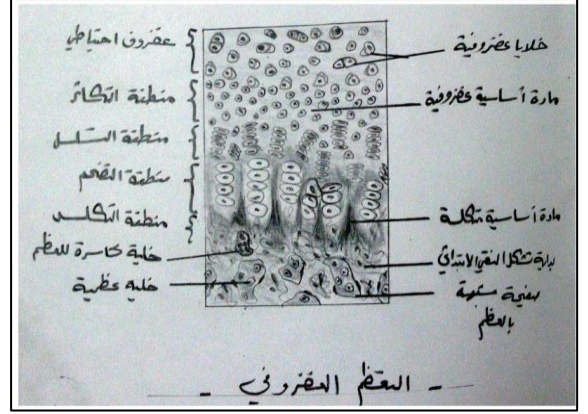 غضروف احتياطي
منطقة التكاثر
منطقة التسلسل
منطقة التضخم
منطقة التكلس
خلية كاسرة للعظم
خلية عظمية
خلايا غضروفية
مادة أساسية غضروفية
مادة أساسية متكلسة
بداية تشكل النقي الابتدائي
صفيحة شبيهة
بالعظم
- التعظم الغضروفي -